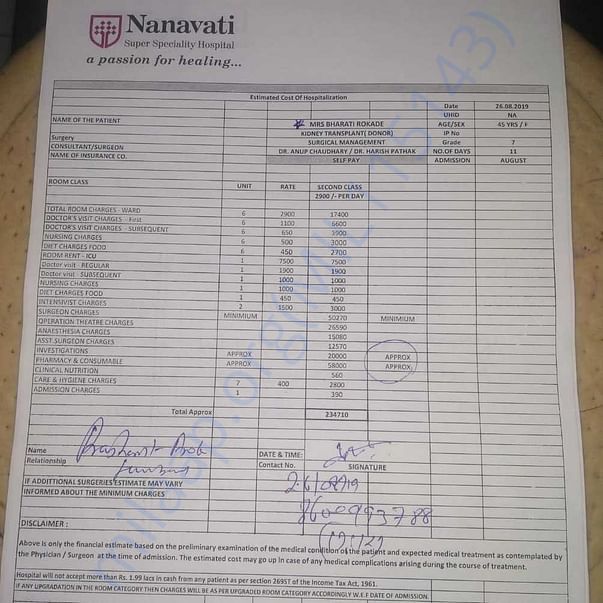 Nanavati
Super Speciality Hospital
a passion for healing...
Estimated Cost Of Hospitalization
Date 26.08.2019
UHID NA
NAME OF THE PATIENT MRS BHARATI ROKADE AGE/SEX 45 YRS / F
KIDNEY TRANSPLANT( DONOR) IP No
Surgery SURGICAL MANAGEMENT Grade 7
CONSULTANT/SURGEON DR. ANUP CHAUDHARY / DR. HARISH PATHAK NO.OF DAYS 11
NAME OF INSURANCE CO. SELF PAY ADMISSION AUGUST
ROOM CLASS UNIT RATE SECOND CLASS
2900 /- PER DAY
TOTAL ROOM CHARGES - WARD 6 2900 17400
DOCTOR'S VISIT CHARGES - First 6 1100 6600
DOCTOR'S VISIT CHARGES - SUBSEQUENT 6 650 3900
NURSING CHARGES 6 500 3000
DIET CHARGES FOOD 6 450 2700
ROOM RENT - ICU 1 7500 7500
Doctor visit - REGULAR 1 1900 1900
Doctor visit - SUBSEQUENT 1 1000 1000
NURSING CHARGES 1 1000 1000
DIET CHARGES FOOD 1 450 450
INTENSIVIST CHARGES 2 1500 3000
SURGEON CHARGES MINIMUM 50270 MINIMUM
OPERATION THEATRE CHARGES 26590
ANAESTHESIA CHARGES 15080
ASST.SURGEON CHARGES 12570
INVESTIGATIONS APPROX 20000 APPROX
PHARMACY & CONSUMABLE APPROX 58000 APPROX
CLINICAL NUTRITION 560
CARE & HYGIENE CHARGES 7 400 2800
ADMISSION CHARGES 1 390
Total Approx 234710
Name DATE & TIME:
Relationship Contact No. SIGNATURE
26/08/19
IF ADDITIONAL SURGERIES ESTIMATE MAY VARY
INFORMED ABOUT THE MINIMUM CHARGES
8600993788
DISCLAIMER :
Above is only the financial estimate based on the preliminary examination of the medical condition of the patient and expected medical treatment as contemplated by
the Physician / Surgeon at the time of admission. The estimate may go up in case of any medical complications arising during the course of treatment.
Hospital will not accept more than Rs. 1.99 lacs in cash from any patient as per section 269ST of the Income Tax Act, 1961.
IF ANY UPGRADATION IN THE ROOM CATEGORY THEN CHARGES WILL BE AS PER UPGRADED ROOM CATEGORY ACCORDINGLY W.E.F DATE OF ADMISSION.